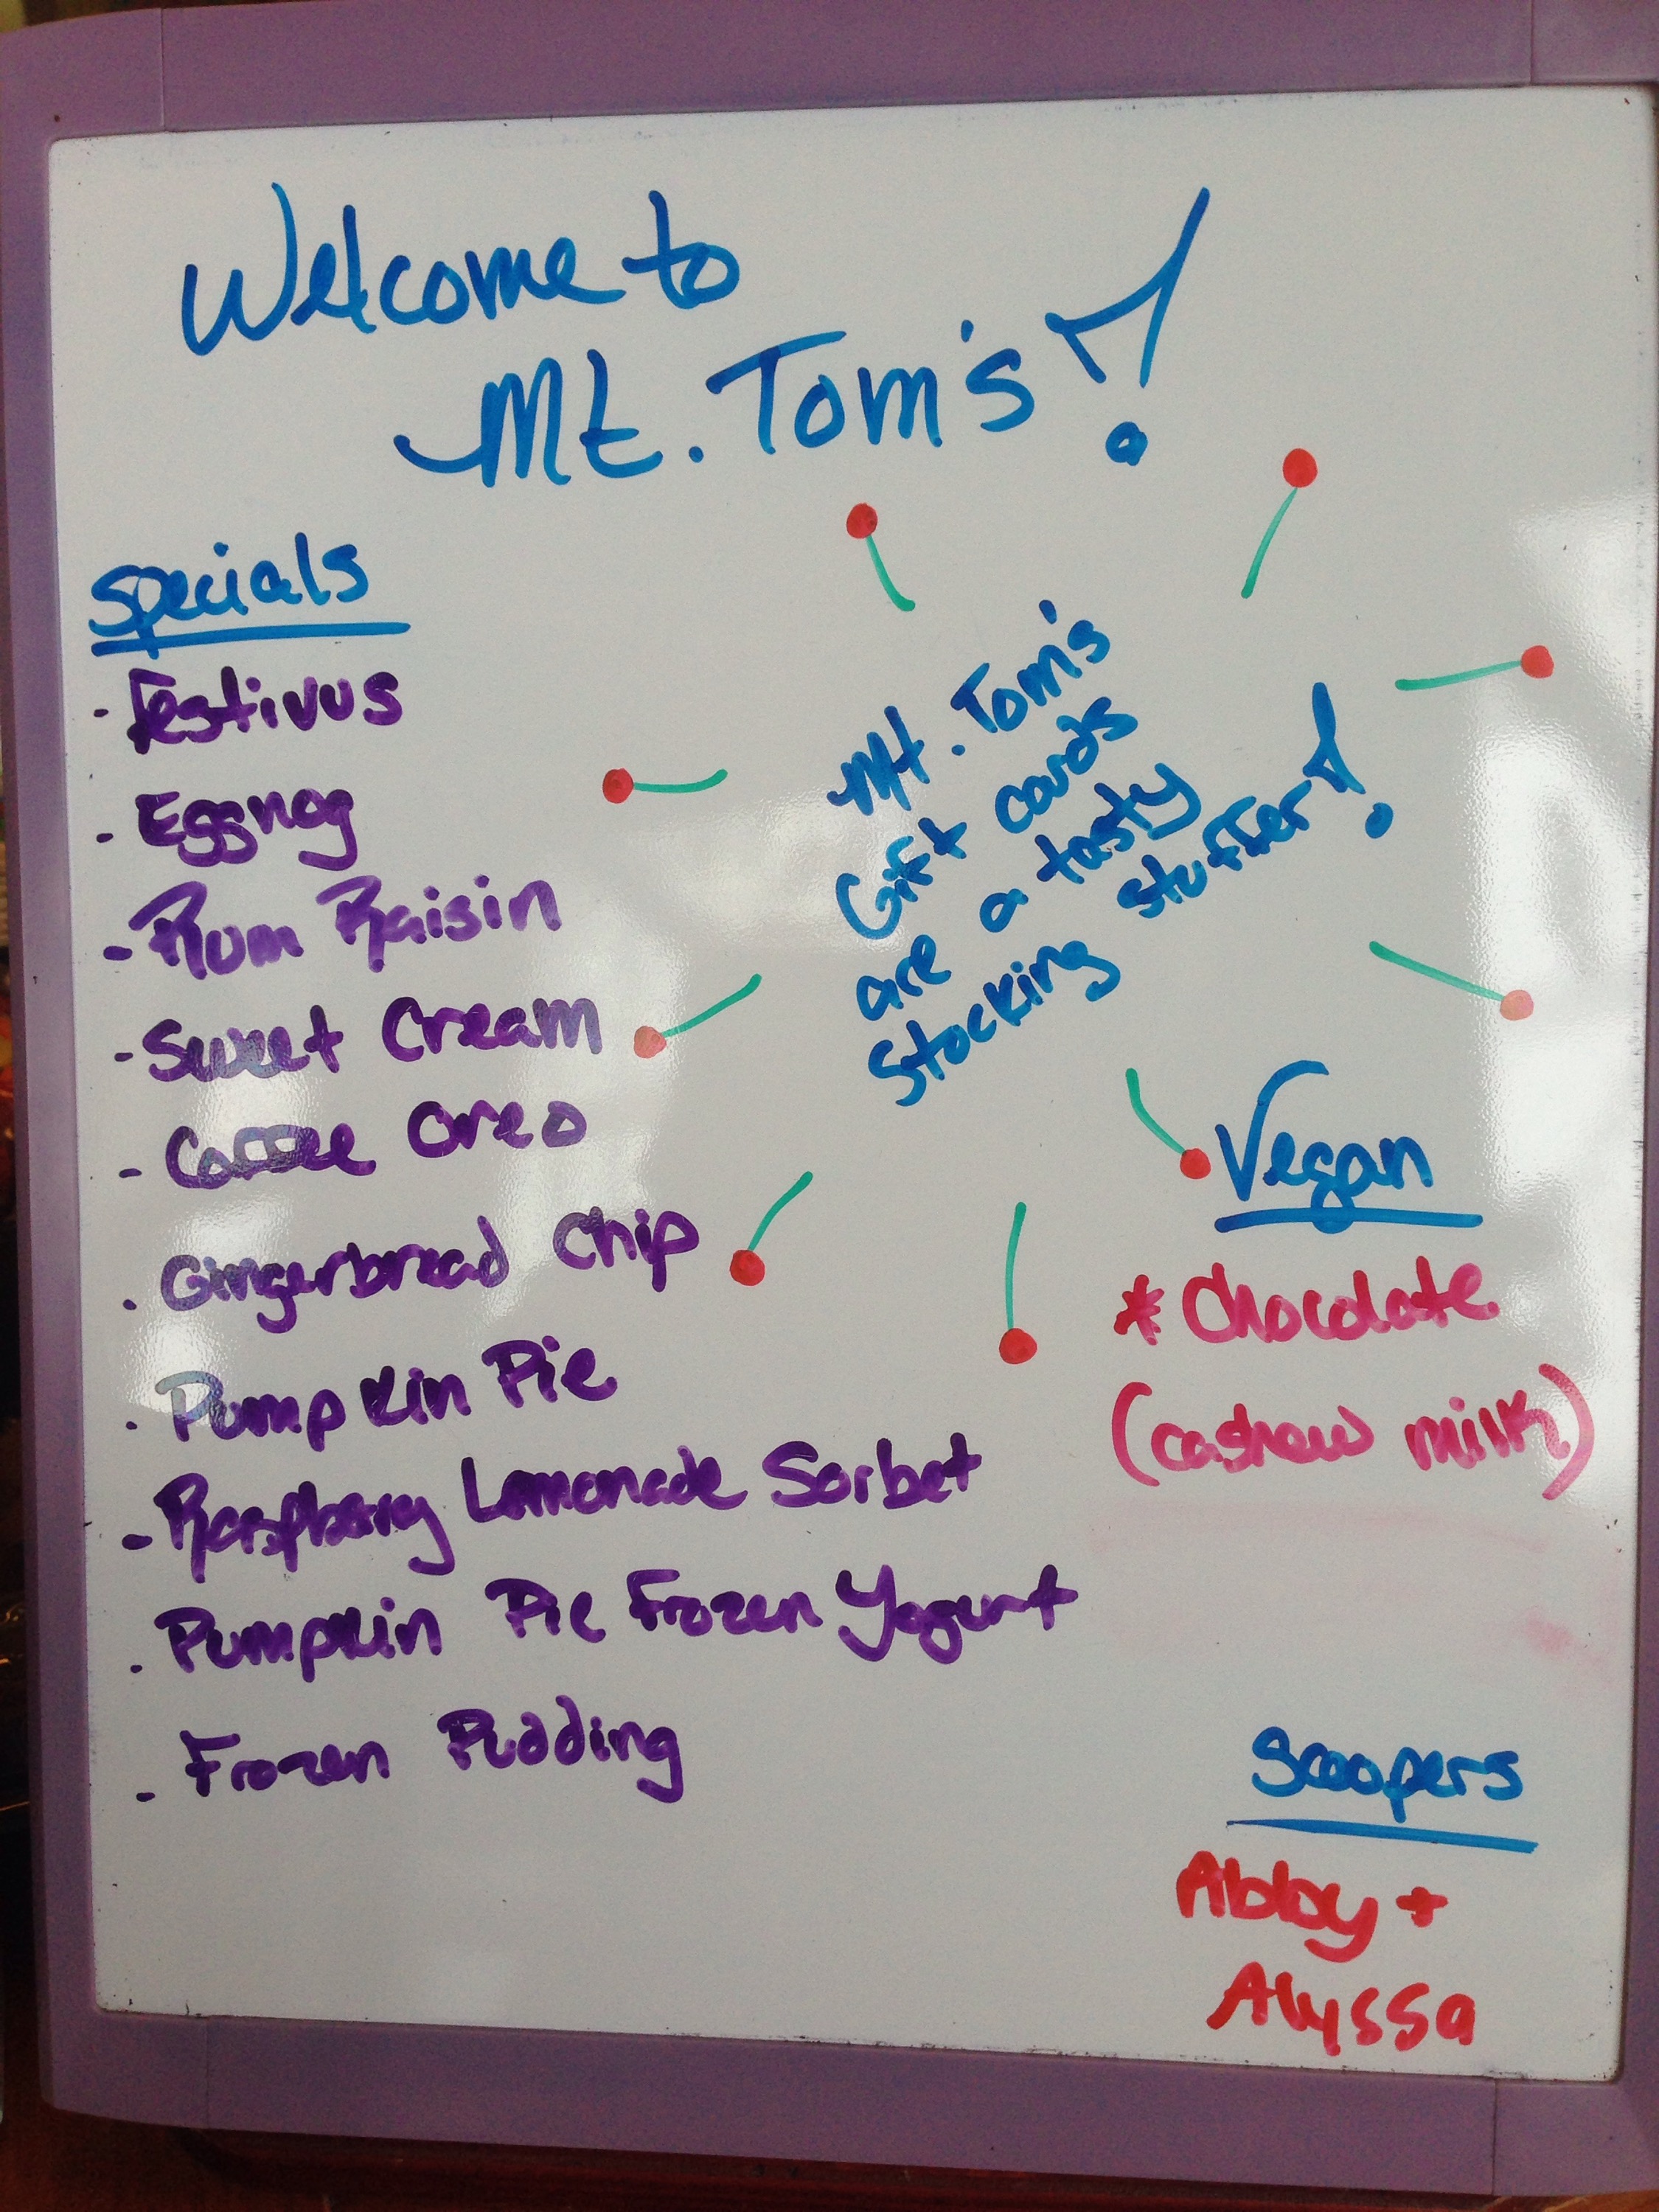 Welcome to
Mt. Tom's!
Specials
- Festivus
- Eggnog
- Rum Raisin
- Sweet Cream
- Coffee Oreo
- Gingerbread Chip
- Pumpkin Pie
- Raspberry Lemonade Sorbet
- Pumpkin Pie Frozen Yogurt
- Frozen Pudding
Mt. Tom's
Gift cards
are a tasty
stocking stuffer!
Vegan
* Chocolate
(cashew milk)
Scoopers
Abby +
Alyssa